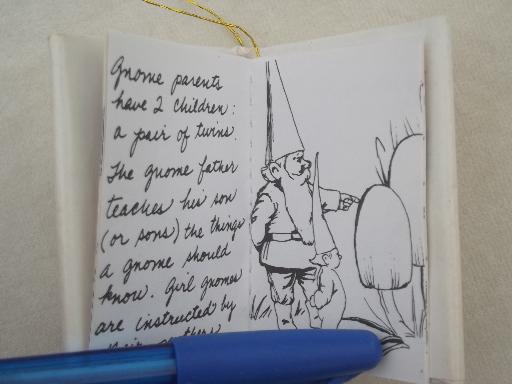 Gnome parents
have 2 children:
a pair of twins.
The gnome father
teaches his son
(or sons) the things
a gnome should
know. Girl gnomes
are instructed by